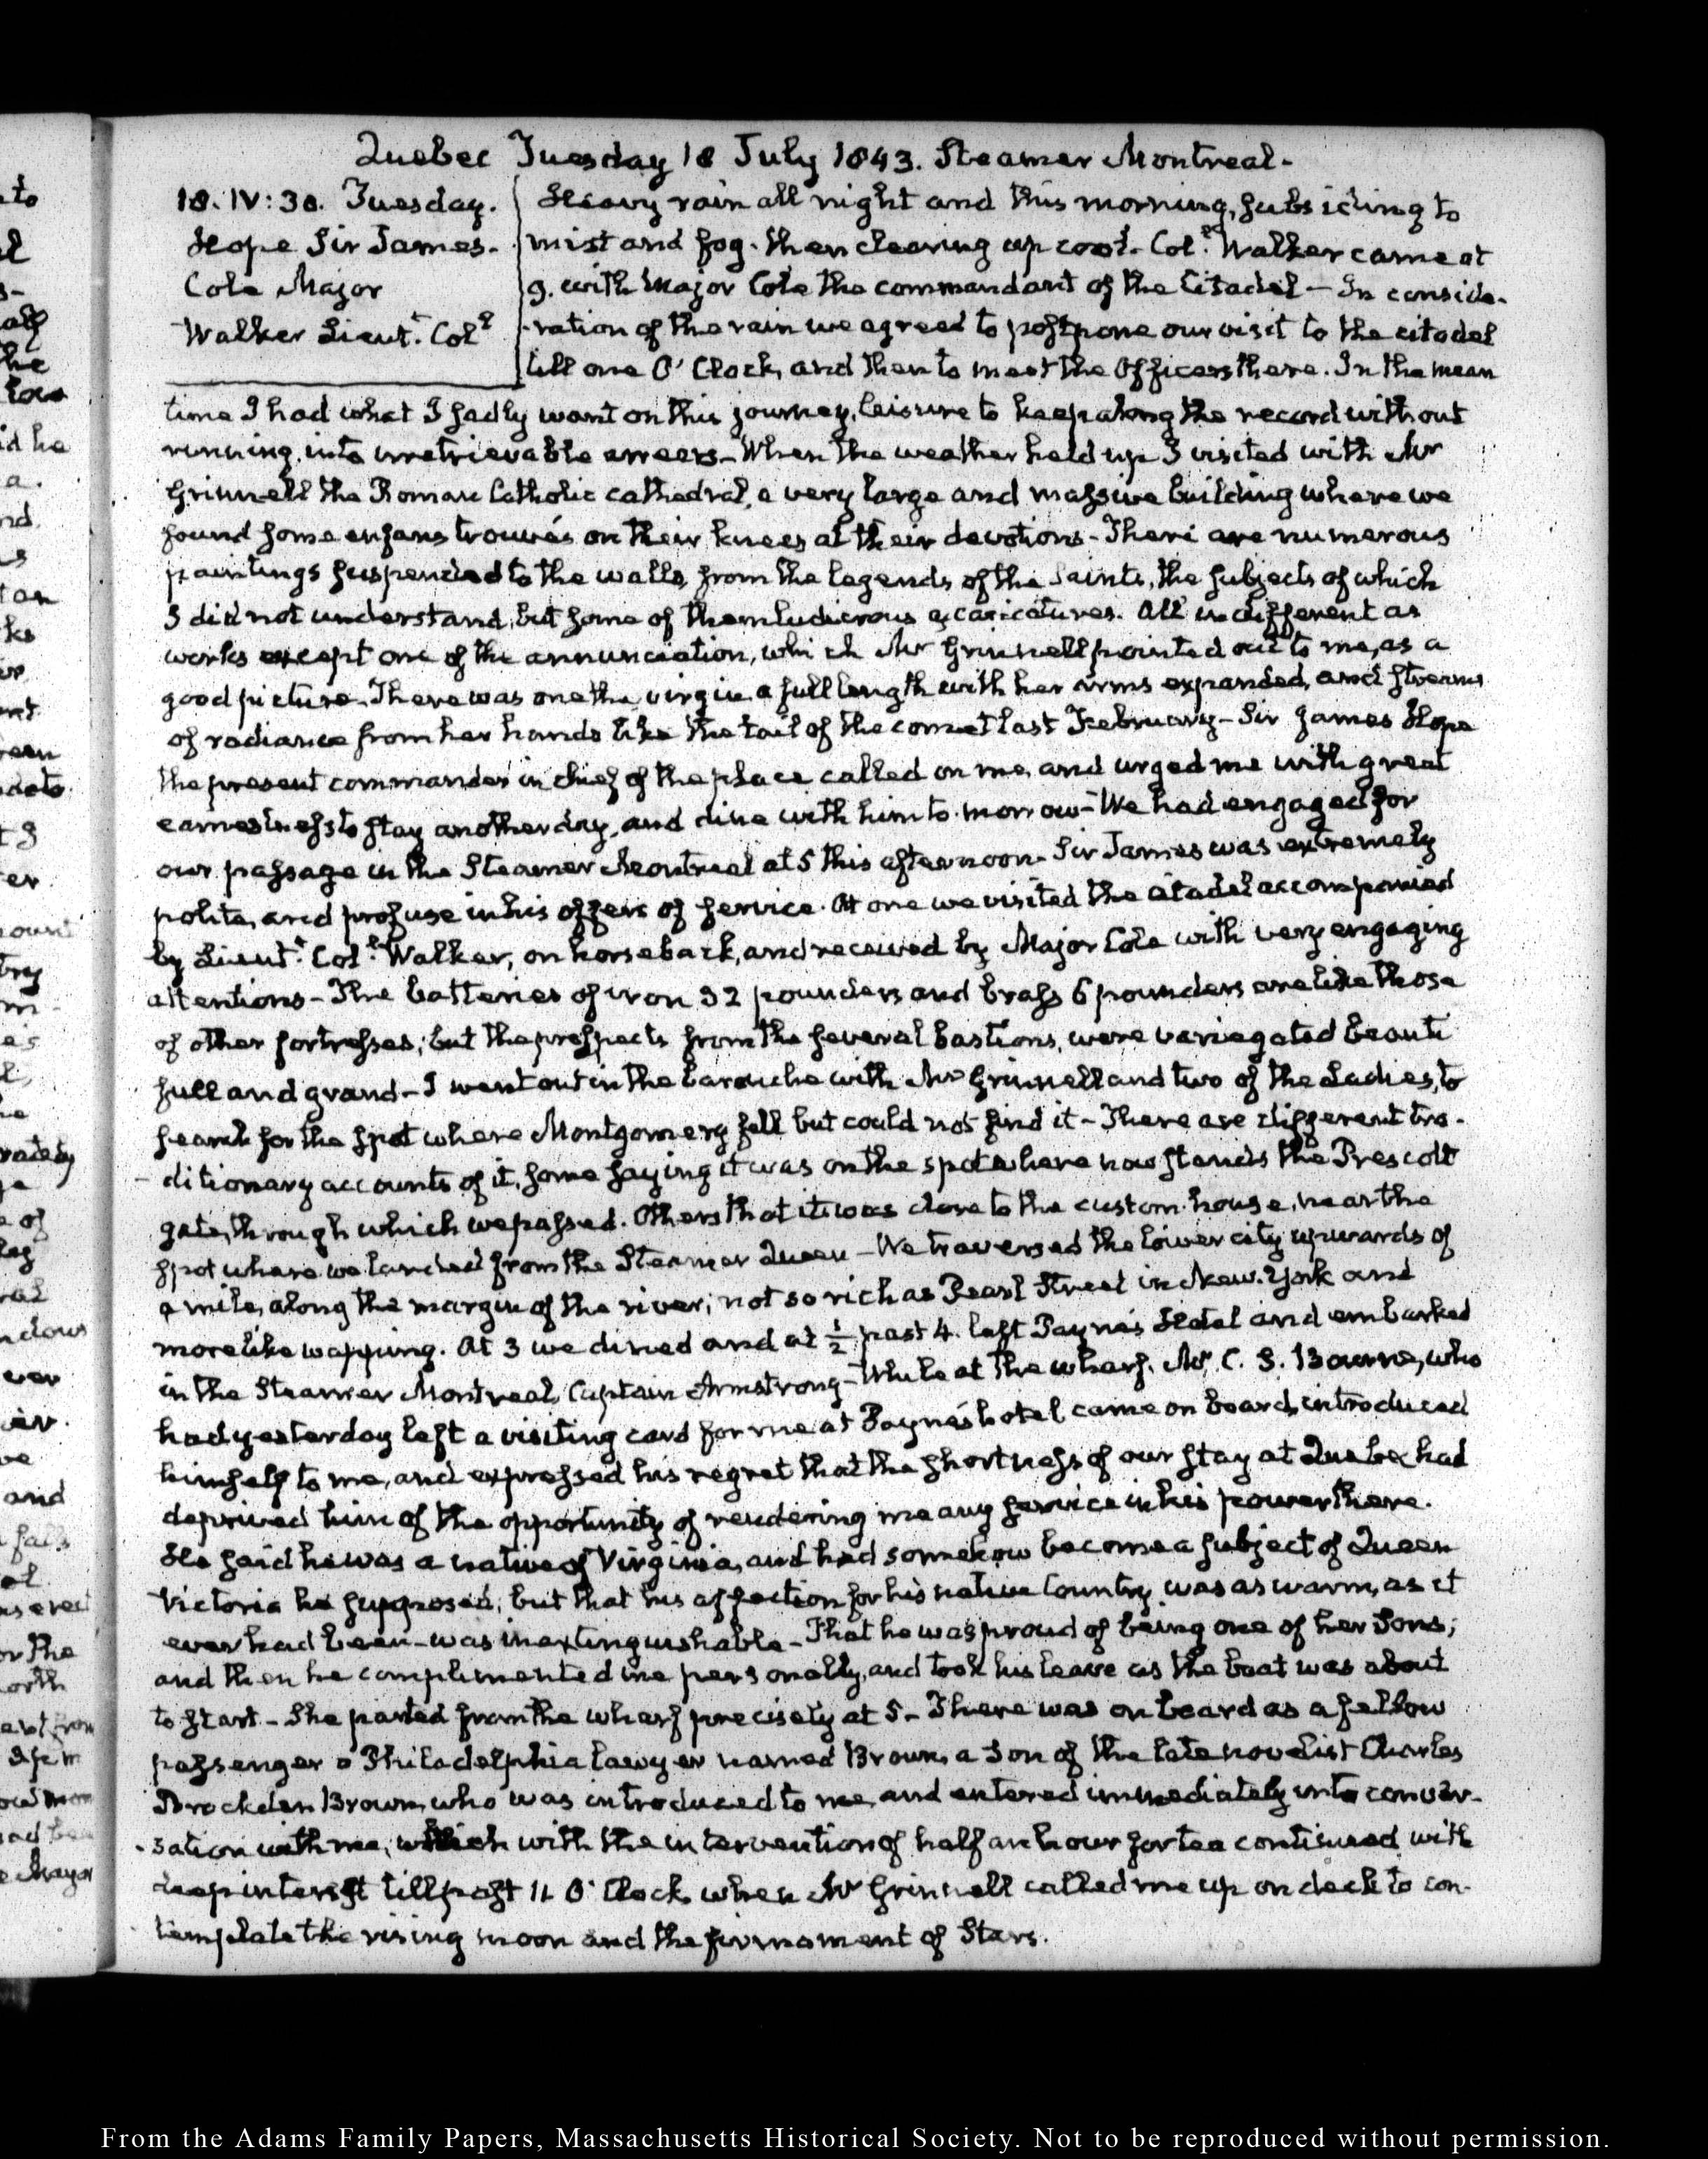 Quebec Tuesday 18 July 1843. Steamer Montreal-
18. IV: 30. Tuesday.
Hope Sir James-
Cole Major
Walker Lieut.t Col.l
Heavy rain all night and this morning, subsiding to
mist and fog. then clearing up cool. Col.l Walker came at
9. with Major Cole the commandant of the Citadel - In conside-
-ration of the rain we agreed to postpone our visit to the citadel
till one O' Clock, and then to meet the Officers there. In the mean
time I had what I sadly want on this journey, leisure to keep along the record without
running into irretrievable arrears- When the weather held up I visited with Mr
Grinnell the Roman Catholic cathedral, a very large and massive building where we
found some enfans trouvés on their knees at their devotions- There are numerous
paintings suspended to the walls, from the legends of the Saints, the subjects of which
I did not understand, but some of them ludicrous caricatures. All indifferent as
works except one of the annunciation, which Mr Grinnell pointed out to me, as a
good picture. There was one the virgin a full length with her arms expanded, and streams
of radiance from her hands like the tail of the comet last February- Sir James Hope
the present commander in chief of the place called on me, and urged me with great
earnestness to stay another day, and dine with him to-morrow- We had engaged for
our passage in the Steamer Montreal at 5 this afternoon- Sir James was extremely
polite, and profuse in his offers of service. At one we visited the citadel accompanied
by Lieut.t Col.l Walker, on horseback, and received by Major Cole with very engaging
attentions- The batteries of iron 32 pounders and brass 6 pounders are like those
of other fortresses; but the prospects from the several bastions, were variegated beauti
full and grand- I went out in the barouche with Mr Grinnell and two of the Ladies, to
search for the spot where Montgomery fell but could not find it- There are different tra-
-ditionary accounts of it, some saying it was on the spot where now stands the Prescott
gate, through which we passed. Others that it was close to the custom-house, near the
spot where we landed from the Steamer Queen- We traversed the lower city upwards of
a mile, along the margin of the river; not so rich as Pearl Street in New-York and
more like wapping. At 3 we dined and at ½ past 4. left Payne's Hotel and embarked
in the Steamer Montreal, Captain Armstrong- While at the wharf. Mr C. S. Bourne, who
had yesterday left a visiting card for me at Payne's hotel came on board, introduced
himself to me, and expressed his regret that the shortness of our stay at Quebec had
deprived him of the opportunity of rendering me any service in his power there.
He said he was a native of Virginia, and had somehow become a subject of Queen
Victoria he supposed; but that his affection for his native Country was as warm, as it
ever had been- was inextinguishable- That he was proud of being one of her Sons;
and then he complimented me personally, and took his leave as the boat was about
to start- She parted from the wharf precisely at 5- There was on board as a fellow
passenger a Philadelphia lawyer named Brown, a Son of the late novelist Charles
Brockden Brown, who was introduced to me, and entered immediately into conver-
-sation with me, which with the intervention of half an hour for tea continued with
deep interest till past 11 O' Clock, when Mr Grinnell called me up on deck to con-
template the rising moon and the firmament of Stars.
From the Adams Family Papers, Massachusetts Historical Society. Not to be reproduced without permission.